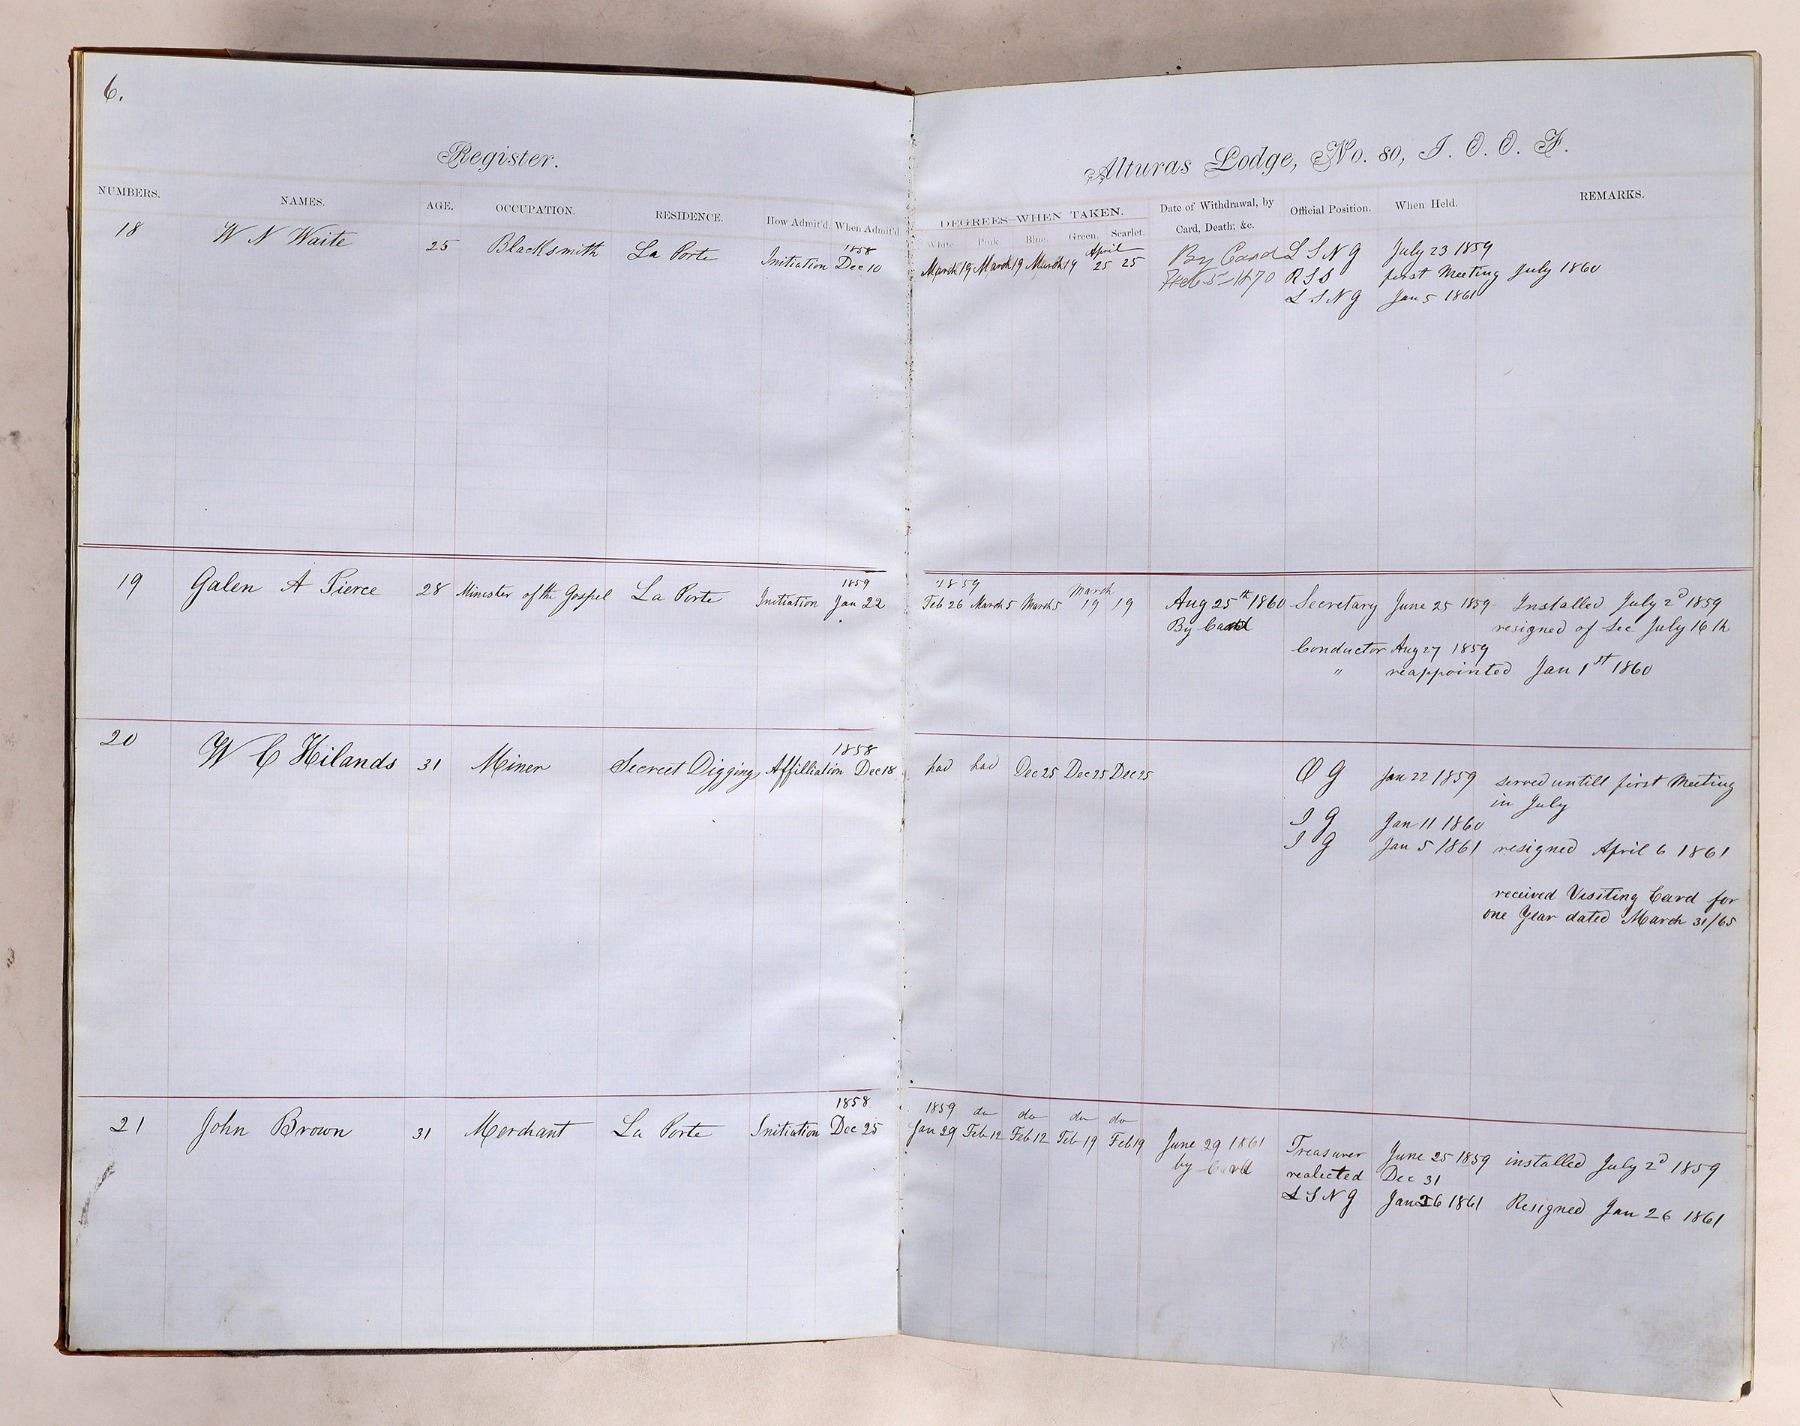 6.
Register.
Alturas Lodge, No. 80, I. O. O. F.
NUMBERS. NAMES. AGE. OCCUPATION. RESIDENCE. How Admit'd. When Admit'd
DEGREES—WHEN TAKEN. Date of Withdrawal, by Official Position. When Held. REMARKS.
White. Pink. Blue. Green. Scarlet. Card, Death; &c.
1858 April
18 W N Waite 25 Blacksmith La Porte Initiation Dec 10 March 19 March 19 March 19 25 25 By Card L S N G July 23 1859
Feb 5 - 1870 R S S first Meeting July 1860
L S N G Jan 5 1861
1859 1859 March
19 Galen A Pierce 28 Minister of the Gospel La Porte Initiation Jan 22 Feb 26 March 5 March 5 19 19 Aug 25th 1860 Secretary June 25 1859 Installed July 2d 1859
By Card resigned of Sec July 16th
Conductor Aug 27 1859
" reappointed Jan 1st 1860
1858
20 W C Hilands 31 Miner Secreet Digging Affilliation Dec 18 had had Dec 25 Dec 25 Dec 25 O G Jan 22 1859 served untill first Meeting
in July
I G Jan 11 1860
I G Jan 5 1861 resigned April 6 1861
received Visiting Card for
one Year dated March 31/65
1858 1859 do do do do
21 John Brown 31 Merchant La Porte Initiation Dec 25 Jan 29 Feb 12 Feb 12 Feb 19 Feb 19 June 29 1861 Treasurer June 25 1859 installed July 2d 1859
by Card realected Dec 31
L S N G Jan 1861 Resigned Jan 26 1861